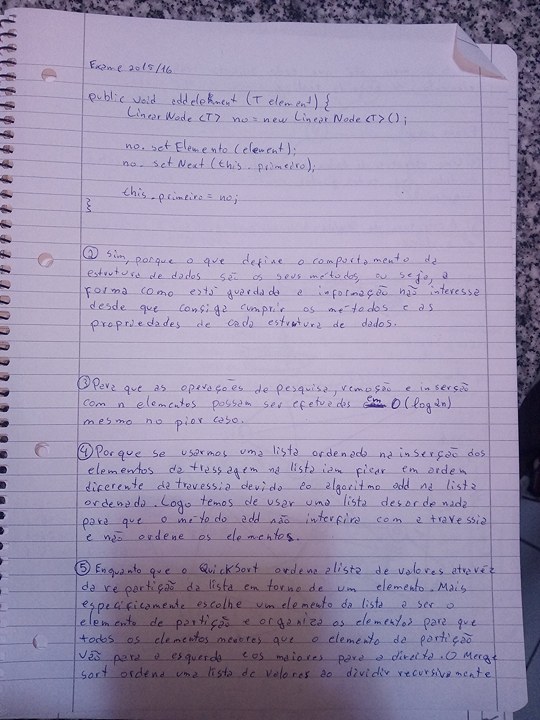 Exame 2015/16
public void addelement (T element) {
LinearNode <T> no = new LinearNode <T>();
no. setElemento (element);
no. setNext (this. primeiro);
this.primeiro = no;
}
② Sim, porque o que define o comportamento da
estrutura de dados são os seus métodos, ou seja, a
forma como está guardada a informação não interessa
desde que consiga cumprir os métodos e as
propriedades de cada estrutura de dados.
③ Para que as operações de pesquisa, remoção e inserção
com n elementos possam ser efetuadas em O(log2n)
mesmo no pior caso.
④ Porque se usarmos uma lista ordenada na inserção dos
elementos da travessia na lista iam ficar em ordem
diferente da travessia devido ao algoritmo add na lista
ordenada. Logo temos de usar uma lista desordenada
para que o método add não interfira com a travessia
e não ordene os elementos.
⑤ Enquanto que o QuickSort ordena a lista de valores através
da repartição da lista em torno de um elemento. Mais
especificamente escolhe um elemento da lista a ser o
elemento de partição e organiza os elementos para que
todos os elementos menores que o elemento de partição
vão para a esquerda e os maiores para a direita. O Merge
sort ordena uma lista de valores ao dividir recursivamente